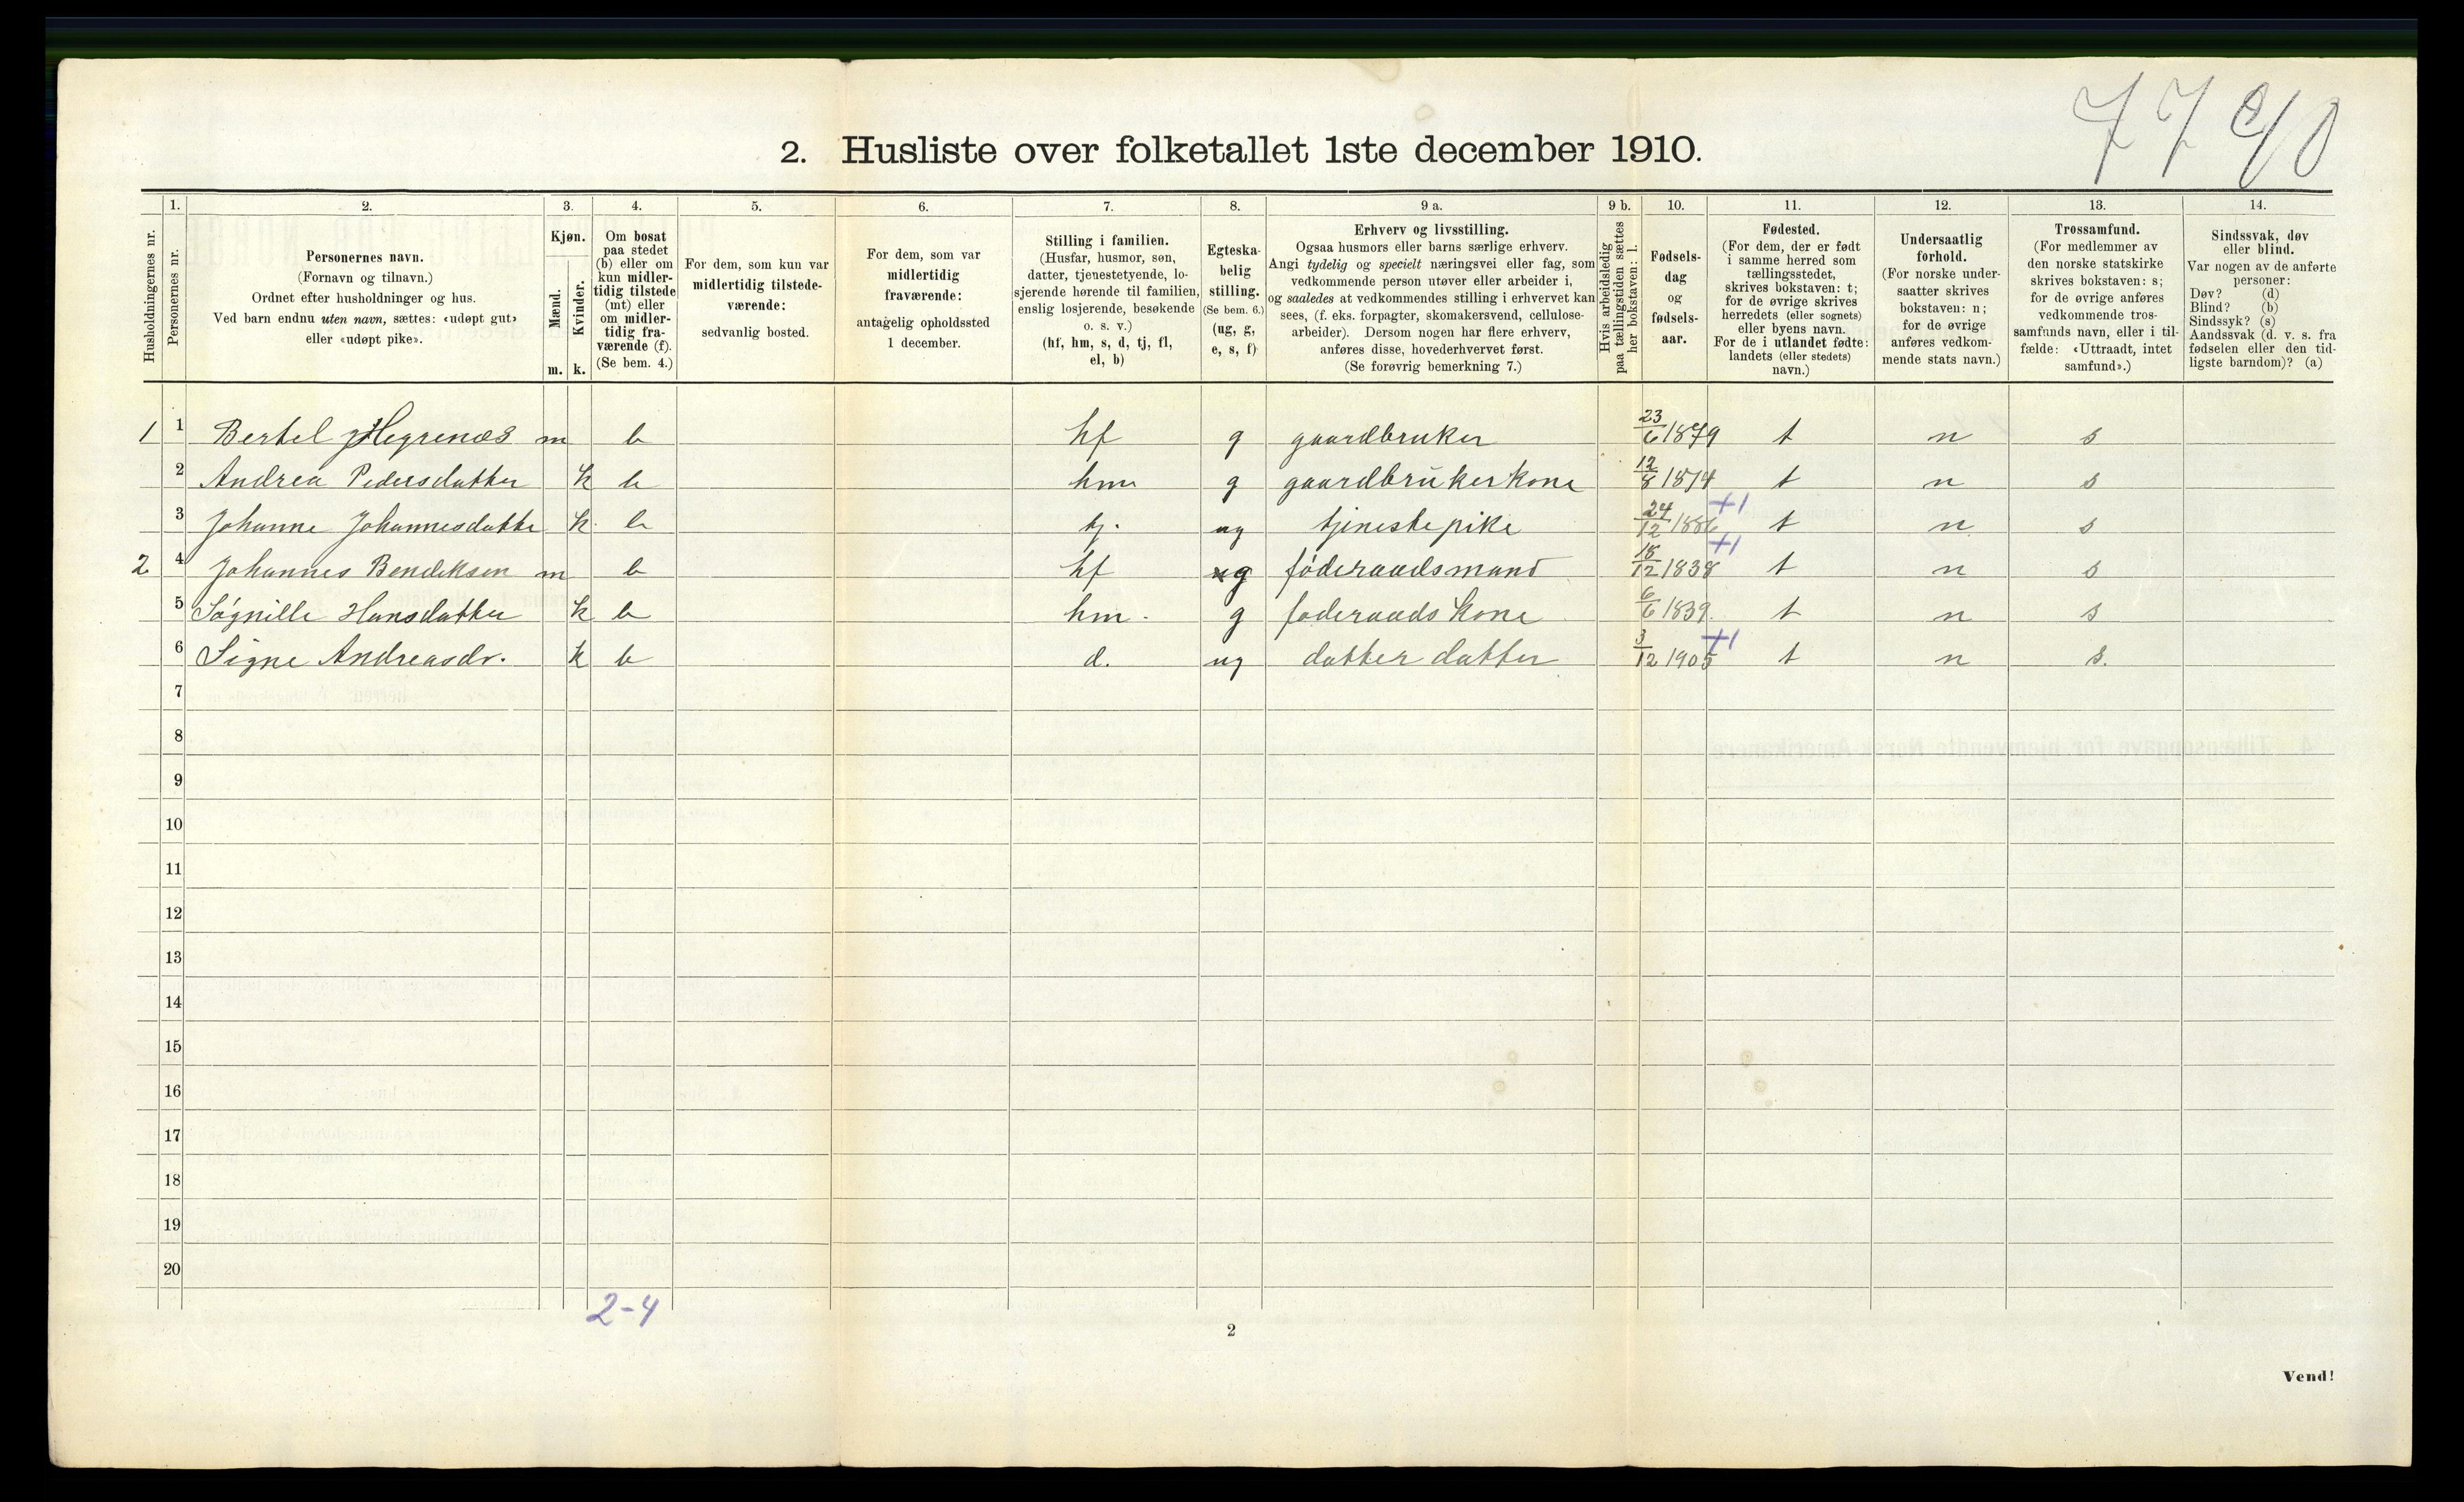 2. Husliste over folketallet 1ste december 1910.
Husholdningernes nr.
1.
Personernes nr.
2.
Personernes navn.
(Fornavn og tilnavn.)
Ordnet efter husholdninger og hus.
Ved barn endnu uten navn, sættes: «udøpt gut»
eller «udøpt pike».
3.
Kjøn.
Mænd.
Kvinder.
m. k.
4.
Om bosat
paa stedet
(b) eller om
kun midler-
tidig tilstede
(mt) eller
om midler-
tidig fra-
værende (f).
(Se bem. 4.)
5.
For dem, som kun var
midlertidig tilstede-
værende:
sedvanlig bosted.
6.
For dem, som var
midlertidig
fraværende:
antagelig opholdssted
1 december.
7.
Stilling i familien.
(Husfar, husmor, søn,
datter, tjenestetyende, lo-
sjerende hørende til familien,
enslig losjerende, besøkende
o. s. v.)
(hf, hm, s, d, tj, fl,
el, b)
8.
Egteska-
belig
stilling.
(Se bem. 6.)
(ug, g,
e, s, f)
9 a.
Erhverv og livsstilling.
Ogsaa husmors eller barns særlige erhverv.
Angi tydelig og specielt næringsvei eller fag, som
vedkommende person utøver eller arbeider i,
og saaledes at vedkommendes stilling i erhvervet kan
sees, (f. eks. forpagter, skomakersvend, cellulose-
arbeider). Dersom nogen har flere erhverv,
anføres disse, hovederhvervet først.
(Se forøvrig bemerkning 7.)
9 b.
Hvis arbeidsledig
paa tællingstiden sættes
her bokstaven: l.
10.
Fødsels-
dag
og
fødsels-
aar.
11.
Fødested.
(For dem, der er født
i samme herred som
tællingsstedet,
skrives bokstaven: t;
for de øvrige skrives
herredets (eller sognets)
eller byens navn.
For de i utlandet fødte:
landets (eller stedets)
navn.)
12.
Undersaatlig
forhold.
(For norske under-
saatter skrives
bokstaven: n;
for de øvrige
anføres vedkom-
mende stats navn.)
13.
Trossamfund.
(For medlemmer av
den norske statskirke
skrives bokstaven: s;
for de øvrige anføres
vedkommende tros-
samfunds navn, eller i til-
fælde: «Uttraadt, intet
samfund».)
14.
Sindssvak, døv
eller blind.
Var nogen av de anførte
personer:
Døv? (d)
Blind? (b)
Sindssyk? (s)
Aandssvak (d. v. s. fra
fødselen eller den tid-
ligste barndom)? (a)
1 1 Bertel Hegrenæs m b hf g gaardbruker 23/6 1879 t n s
2 Andrea Pedersdatter k b hm g gaardbrukerkone 12/8 1874 t n s
3 Johanne Johannesdatte k. b tj. ug tjenestepike 24/12 1886 +1 t n s
2 4 Johannes Bendiksen m b hf g føderaadsmand 15/12 1838 +1 t n s
5 Søgnille Hansdatter k b hm. g føderaadskone 6/6 1839. t n s
6 Signe Andreasdr. k b d. ug datter datter 3/12 1905 +1 t n s.
7
8
9
10
11
12
13
14
15
16
17
18
19
20
2-4
2
Vend!